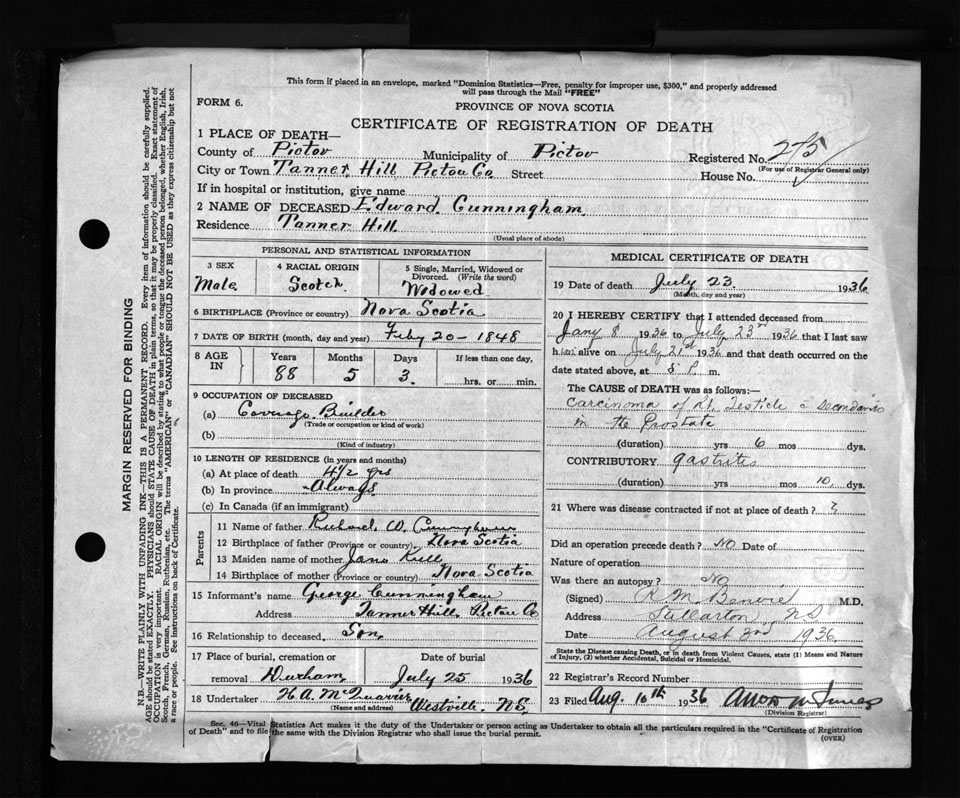 This form if placed in an envelope, marked "Dominion Statistics—Free, penalty for improper use, $300," and properly addressed
will pass through the Mail "FREE"
FORM 6.
PROVINCE OF NOVA SCOTIA
CERTIFICATE OF REGISTRATION OF DEATH
1 PLACE OF DEATH—
County of Pictou Municipality of Pictou Registered No. 275
(For use of Registrar General only)
City or Town Tanner Hill Pictou Co Street House No.
If in hospital or institution, give name
2 NAME OF DECEASED Edward Cunningham
Residence Tanner Hill
(Usual place of abode)
PERSONAL AND STATISTICAL INFORMATION
3 SEX
Male
4 RACIAL ORIGIN
Scotch
5 Single, Married, Widowed or
Divorced. (Write the word)
Widowed
6 BIRTHPLACE (Province or country) Nova Scotia
7 DATE OF BIRTH (month, day and year) Feby 20 - 1848
8 AGE IN
Years Months Days If less than one day,
88 5 3. hrs. or min.
9 OCCUPATION OF DECEASED
(a) Builder
(Trade or occupation or kind of work)
(b)
(Kind of industry)
10 LENGTH OF RESIDENCE (In years and months)
(a) At place of death 4 1/2 yrs
(b) In province - Always
(c) In Canada (if an immigrant)
Parents
11 Name of father Richard W. Cunningham
12 Birthplace of father (Province or country) Nova Scotia
13 Maiden name of mother Jane
14 Birthplace of mother (Province or country) Nova Scotia
15 Informant's name George Cunningham
Address Tanner Hill. Pictou Co
16 Relationship to deceased. Son,
17 Place of burial, cremation or Date of burial
removal Durham July 25 1936
18 Undertaker H. A. McQuarrie Westville. N.S.
(Name and address)
MEDICAL CERTIFICATE OF DEATH
19 Date of death July 23. 1936
(Month, day and year)
20 I HEREBY CERTIFY that I attended deceased from
Jany 8 1936 to July 23rd 1936 that I last saw
him alive on July 21st 1936 and that death occurred on the
date stated above, at 8 P. m.
The CAUSE of DEATH was as follows:—
Carcinoma of Testicle
in the Prostate
(duration) yrs 6 mos dys.
CONTRIBUTORY gastritis
(duration) yrs mos 10 dys.
21 Where was disease contracted if not at place of death? ?
Did an operation precede death? NO Date of
Nature of operation
Was there an autopsy? NO
(Signed) M.D.
Address Stellarton, NS
Date August 2nd 1936
State the Disease causing Death, or in death from Violent Causes, state (1) Means and Nature
of Injury, (2) whether Accidental, Suicidal or Homicidal.
22 Registrar's Record Number
23 Filed Aug. 10th 1936
(Division Registrar)
Sec. 46—Vital Statistics Act makes it the duty of the Undertaker or person acting as Undertaker to obtain all the particulars required in the "Certificate of Registration
of Death" and to file the same with the Division Registrar who shall issue the burial permit.
(OVER)
MARGIN RESERVED FOR BINDING
N.B.—WRITE PLAINLY WITH UNFADING INK—THIS IS A PERMANENT RECORD. Every item of information should be carefully supplied.
AGE should be stated EXACTLY. PHYSICIANS should STATE CAUSE OF DEATH in plain terms, so that it may be properly classified. Exact statement of
OCCUPATION is very important. RACIAL ORIGIN will be described by stating to what people or tongue the deceased person belonged, whether English, Irish,
Scotch, French, German, Russian, Ruthenian, etc. The terms "AMERICAN" or "CANADIAN" SHOULD NOT BE USED as they express citizenship but not
a race or people. See instructions on back of Certificate.